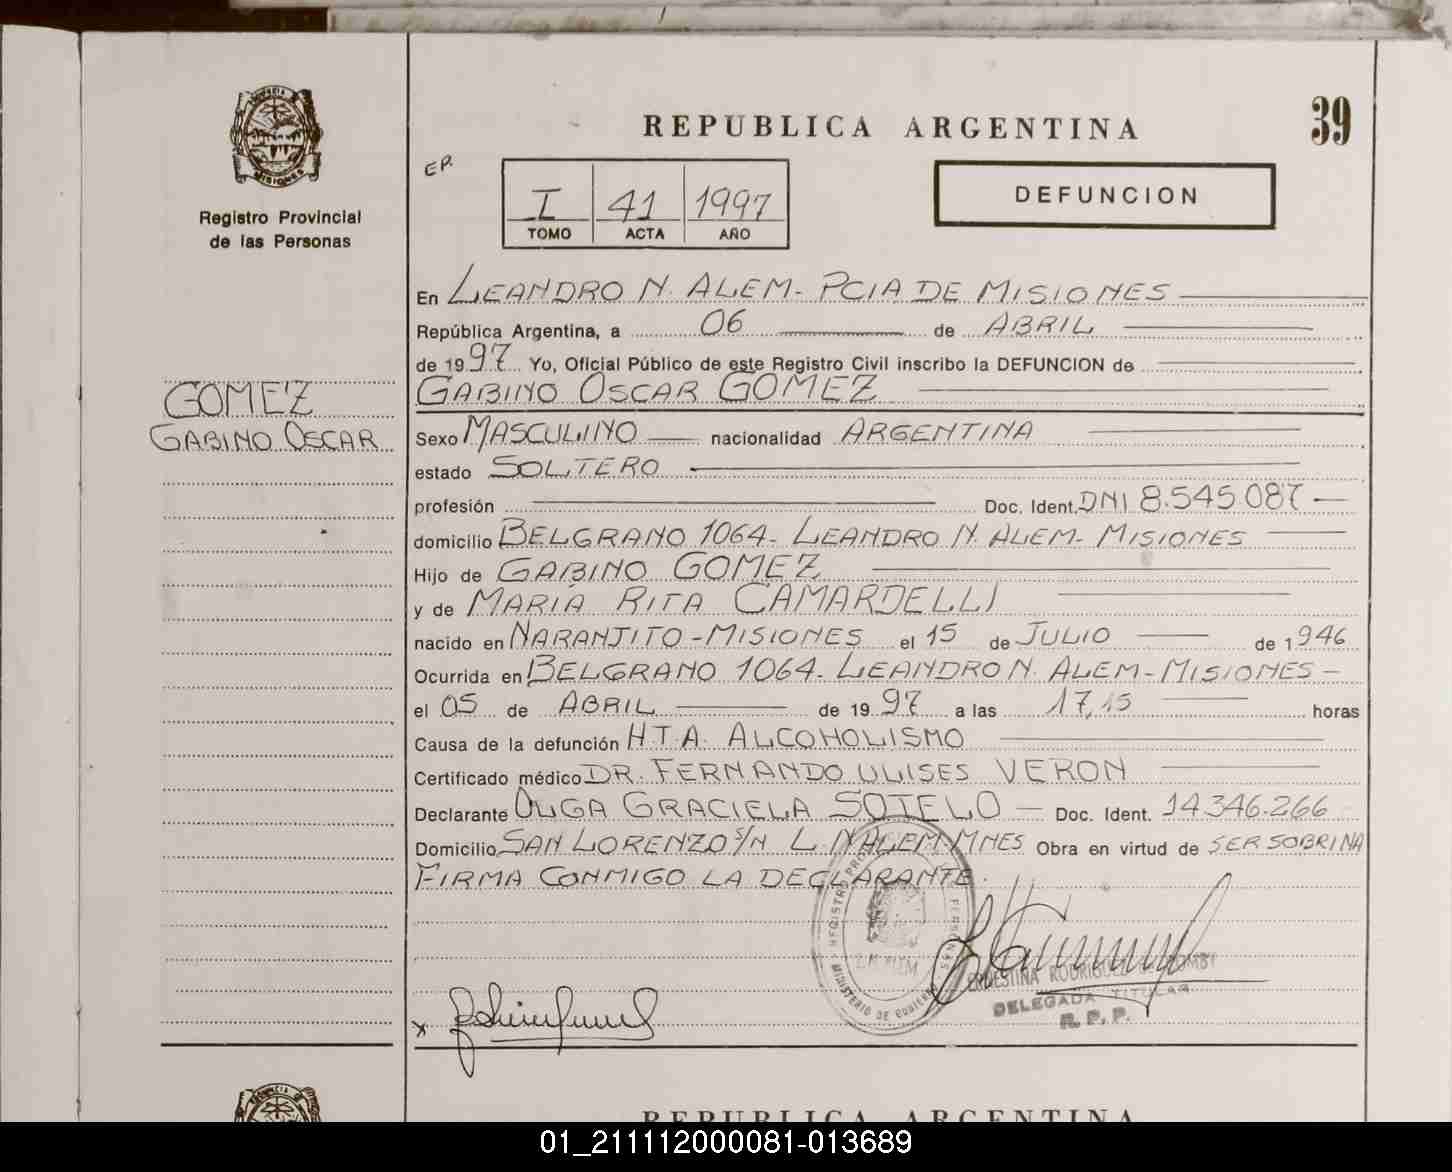 REPUBLICA ARGENTINA
39
MISIONES
Registro Provincial
de las Personas
EP.
I 41 1997
TOMO ACTA AÑO
DEFUNCION
En LEANDRO N. ALEM - PCIA DE MISIONES
República Argentina, a 06 de ABRIL
de 1997 Yo, Oficial Público de este Registro Civil inscribo la DEFUNCION de
GABINO OSCAR GOMEZ
GOMEZ
GABINO OSCAR
Sexo MASCULINO nacionalidad ARGENTINA
estado SOLTERO
profesión Doc. Ident. DNI 8.545.087
domicilio BELGRANO 1064 - LEANDRO N. ALEM - MISIONES
Hijo de GABINO GOMEZ
y de MARIA RITA CAMARDELLI
nacido en NARANJITO - MISIONES el 15 de JULIO de 1946
Ocurrida en BELGRANO 1064 - LEANDRO N. ALEM - MISIONES -
el 05 de ABRIL de 1997 a las 17,15 horas
Causa de la defunción H.T.A. ALCOHOLISMO
Certificado médico DR. FERNANDO ULISES VERON
Declarante OLGA GRACIELA SOTELO - Doc. Ident. 14.346.266
Domicilio SAN LORENZO S/N L. N ALEM - MNES Obra en virtud de SER SOBRINA
FIRMA CONMIGO LA DECLARANTE.
REGISTRO PERSONAS
MINISTERIO DE GOBIERNO
ERNESTINA
DELEGADA TITULAR
R. P. P.
x
REPUBLICA ARGENTINA
01_211112000081-013689